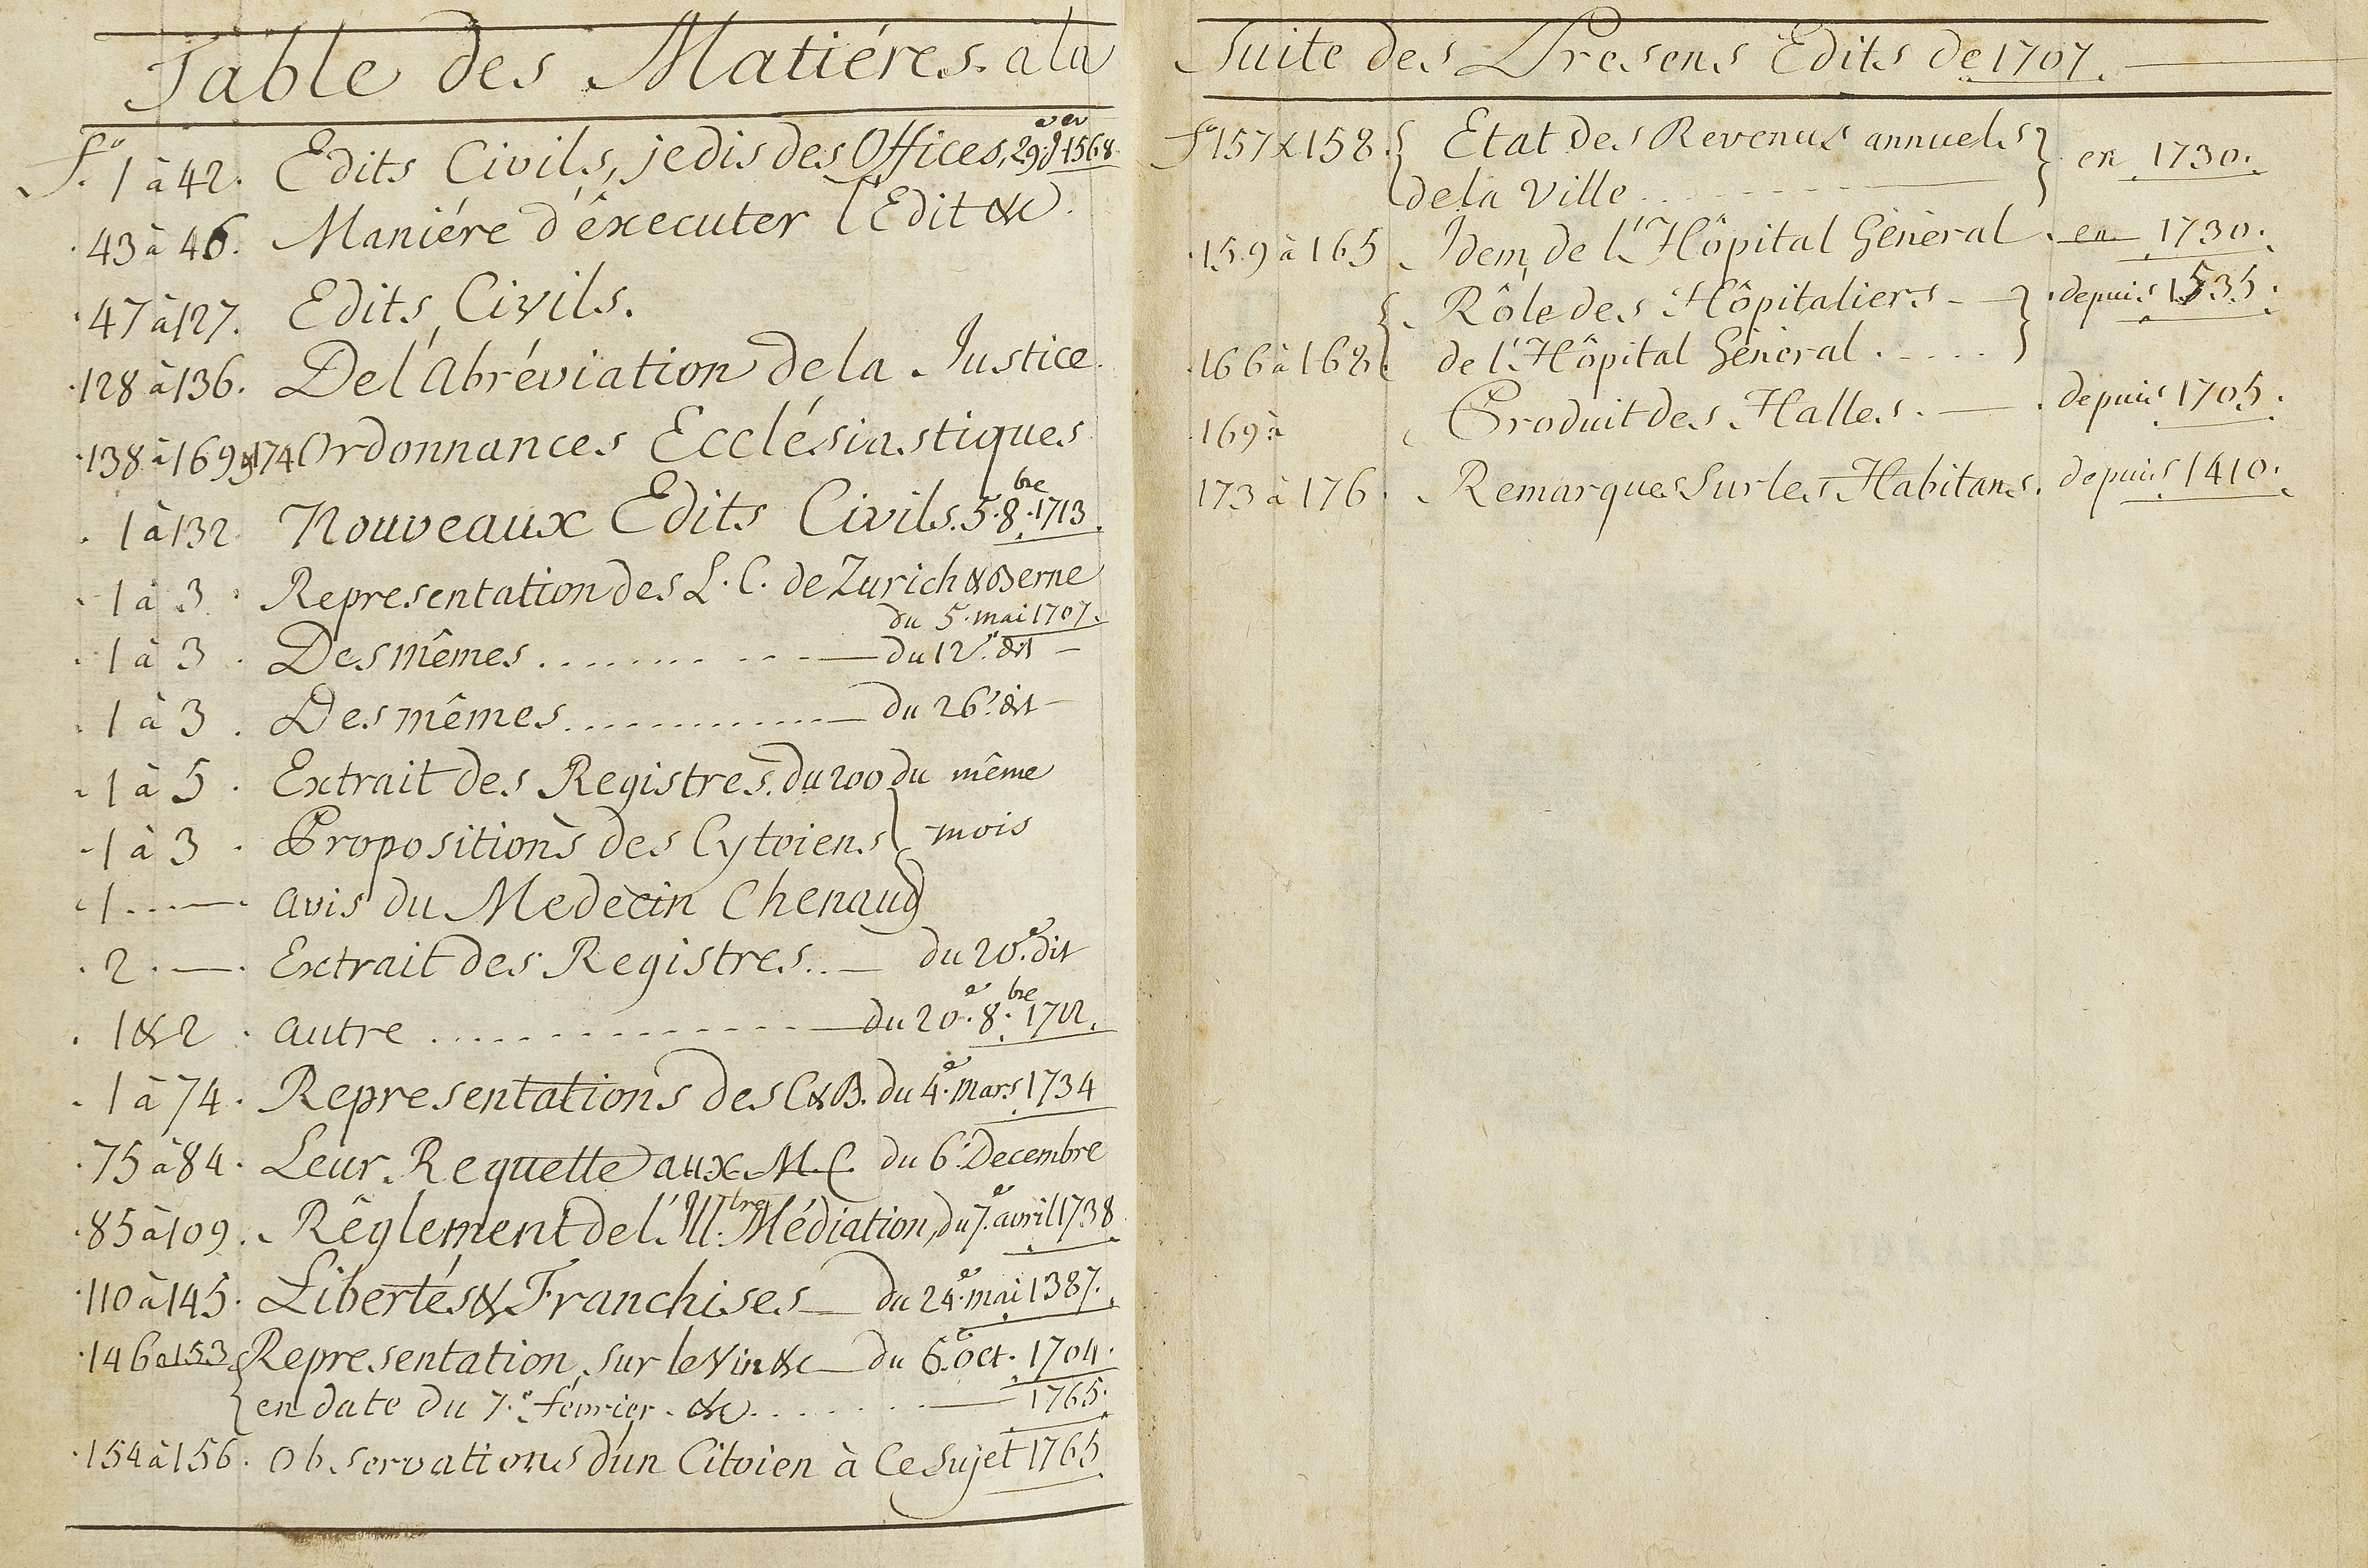 Table des Matiéres. a la
fo. 1 à 42. Edits Civils, je dis des Offices, 29. 1568.
43 à 46. Maniére d'éxecuter l'Edit &c.
47 à 127. Edits Civils.
128 à 136. De l'abréviation de la Justice.
138 à 169 & 174 Ordonnances Ecclésiastiques
1 à 132 Nouveaux Edits Civils. 5. 8.bre 1713.
1 à 3. Representation des L. C. de Zurich & Berne
du 5. mai 1707.
1 à 3. Des mêmes .......... du 12.e dit
1 à 3. Des mêmes .......... du 26.e dit
1 à 5. Extrait des Registres. du 200 du même
1 à 3. Propositions des Cytoiens } mois
1. avis du Medecin Chenaud
2. Extrait des Registres .. du 20.e dit
1 & 2. autre .......... du 20.e 8.bre 1712.
1 à 74. Representations des C & B. du 4.e Mars 1734
75 à 84. Leur Requette aux M. C. du 6.e Decembre
85 à 109. Réglement de l'Ill.tre Médiation, du 7.e avril 1738
110 à 145. Libertés & Franchises du 24.e mai 1387.
146 a 153 { Representation sur le Vin &c du 6.e oct. 1704.
en date du 7.e février. &c. ........ 1765.
154 à 156. Observations d'un Citoien à Ce Sujet 1765
Suite des Presens Edits de 1707.
fo 157 & 158. { Etat des Revenus annuels } en 1730.
de la Ville
159 à 165 Idem, de l'Hôpital Général. en 1730.
{ Rôle des Hôpitaliers } depuis 1535.
166 à 168 de l'Hôpital Général.....
169 à Produit des Halles. depuis 1705.
173 à 176. Remarques Sur les Habitans. depuis 1410.